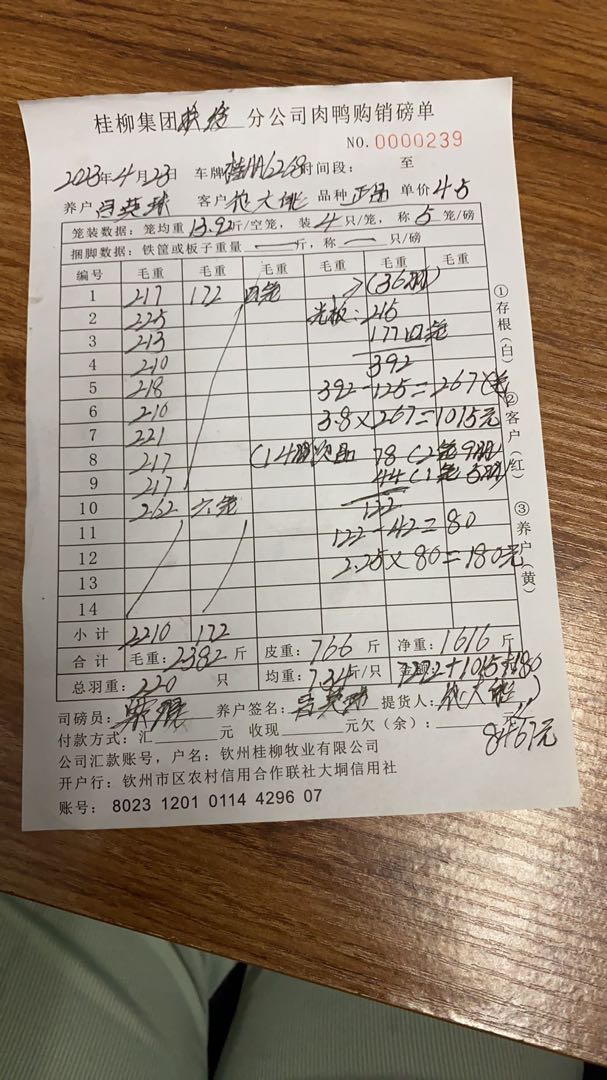 桂柳集团 分公司肉鸭购销磅单
NO.0000239
2023年4月23日 车牌 6268时间段: 至
养户 客户 大 品种 正品 单价 4.5
笼装数据:笼均重13.92斤/空笼,装4只/笼,称5笼/磅
捆脚数据:铁筐或板子重量 — 斤,称 — 只/磅
编号 毛重 毛重 毛重 毛重 毛重 毛重
1 217 172 四笼 (36羽)
2 225 光板: 215
3 213 177四笼
4 210 392
5 218 392-125=267
6 210 3.8×267=1015元
7 221
8 217 (14羽次品 78(2笼9羽)
9 217 44(1笼5羽)
10 262 六笼 122
11 122-42=80
12 2.25×80=180元
13
14
小计 2210 172
合计 毛重:2382斤 皮重:766斤 净重:1616斤
总羽重:220只 均重:7.34斤/只 金额:7272+1015+180
司磅员: 养户签名: 提货人:
付款方式:汇 元 收现 元欠(余): 8467元
公司汇款账号,户名:钦州桂柳牧业有限公司
开户行:钦州市区农村信用合作联社大垌信用社
账号: 8023 1201 0114 4296 07
①存根(白) ②客户(红) ③养户(黄)